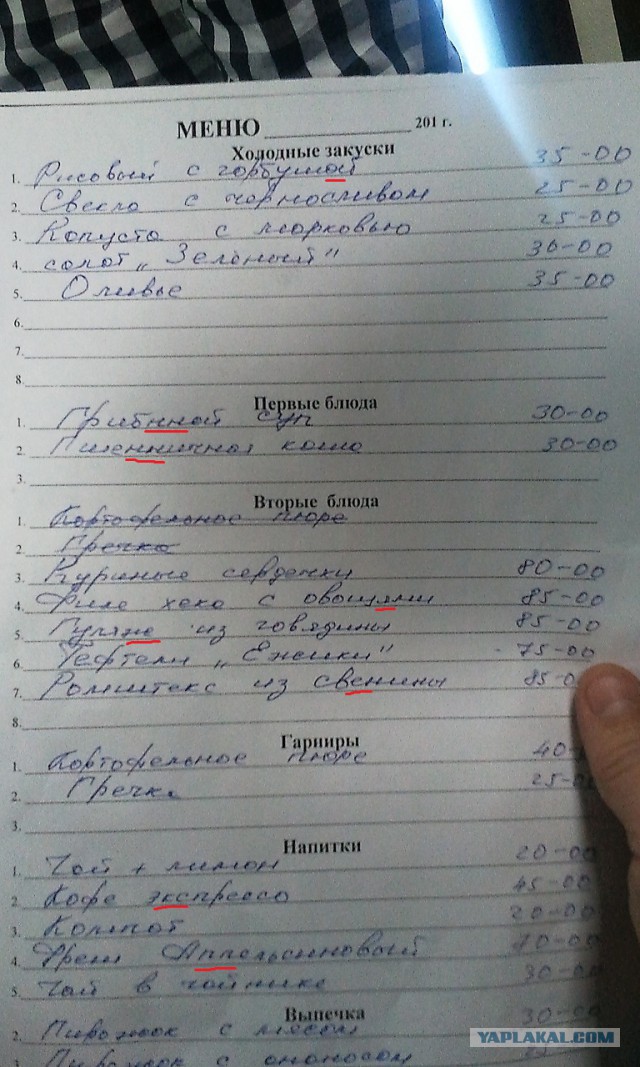 МЕНЮ ____________ 201 г.
Холодные закуски
1. Рисовый с горбушой 35-00
2. Свекла с черносливом 25-00
3. Капуста с морковью 25-00
4. салат „Зеленый" 30-00
5. Оливье 35-00
6.
7.
8.
Первые блюда
1. Грибнной суп 30-00
2. Пшеннничная каша 30-00
3.
Вторые блюда
1. Картофельное пюре
2. Гречка
3. Куриные сердечки 80-00
4. Филе хека с овощями 85-00
5. Гуляже из говядины 85-00
6. Тефтели „Ежики" - 75-00
7. Ромштекс из свенины 85-0
8.
Гарниры
1. Картофельное пюре 40-
2. Гречка 25-00
3.
Напитки
1. Чай + лимон 20-00
2. Кофе экспрессо 45-00
3. Компот 20-00
4. Фреш Аппельсиновый 70-00
5. Чай в чайнике 30-00
Выпечка
2. Пирожок с мясом 30-00
3. Пирожок с ананасом
YAPLAKAL.COM